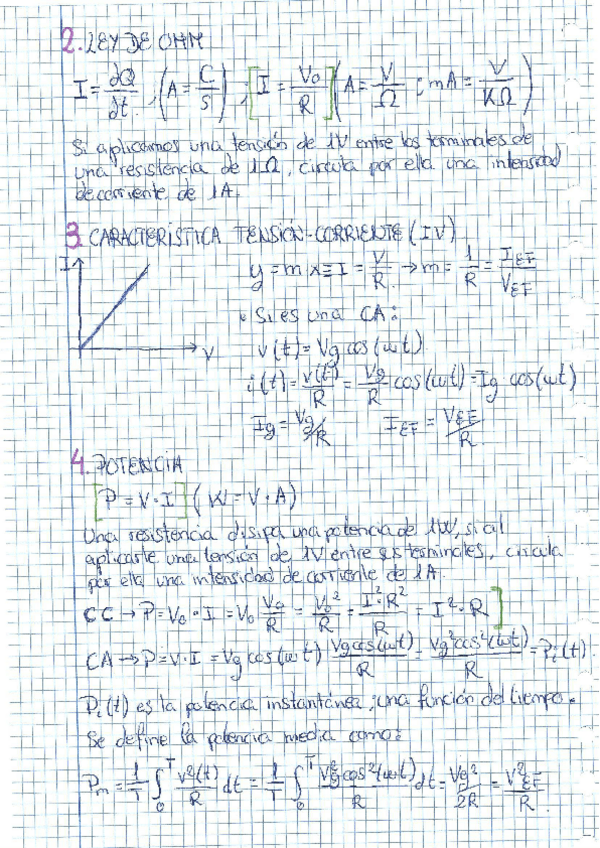 2. LEY DE OHM
I = ∂Q/∂t, (A = C/s) ; [I = V₀/R] (A = V/Ω ; mA = V/KΩ)
Si aplicamos una tensión de 1V entre los terminales de
una resistencia de 1Ω, circula por ella una intensidad
de corriente de 1A.
3. CARACTERÍSTICA TENSIÓN-CORRIENTE (IV)
I
V
y = m x ≡ I = V/R → m = 1/R = I_EF/V_EF
• Si es una CA:
v(t) = Vg cos(ωt)
i(t) = v(t)/R = Vg/R cos(ωt) = Ig cos(ωt)
Ig = Vg/R I_EF = V_EF/R
4. POTENCIA
[P = V · I] (W = V · A)
Una resistencia disipa una potencia de 1W, si al
aplicarle una tensión de 1V entre sus terminales, circula
por ella una intensidad de corriente de 1A.
CC → P = V₀ · I = V₀ V₀/R = V₀²/R = I²·R²/R = I²·R]
CA → P = V · I = Vg cos(ωt) Vg cos(ωt)/R = Vg² cos²(ωt)/R = Pi(t)
Pi(t) es la potencia instantánea, una función del tiempo.
Se define la potencia media como:
Pm = 1/T ∫₀ᵀ v²(t)/R dt = 1/T ∫₀ᵀ Vg² cos²(ωt)/R dt = Vg²/2R = V²_EF/R